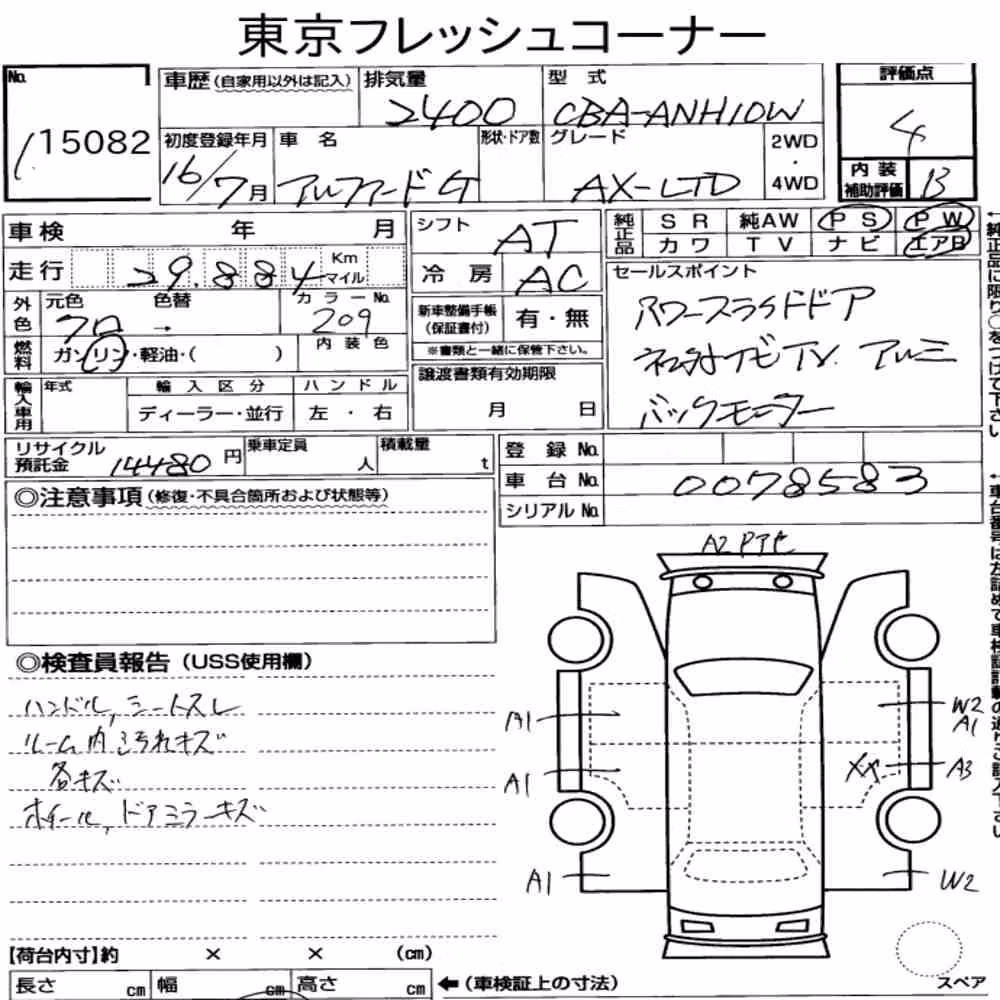 東京フレッシュコーナー
No.
15082
車歴(自家用以外は記入)
排気量
2400
型 式
CBA-ANH10W
評価点
4
初度登録年月
16/7月
車 名
アルファード G
形状・ドア数
グレード
AX-LTD
2WD
・
4WD
内 装
補助評価
B
車 検 年 月
シフト
AT
純正品
S R
純AW
P S
P W
カ ワ
T V
ナ ビ
エアB
走 行
29.884
Km
マイル
冷 房
AC
セールスポイント
パワースライドドア
ナビTV. アルミ
バックモニター
外色
元色
色替
クロ →
カラーNo.
209
新車整備手帳
(保証書付)
有・無
※書類と一緒に保管下さい。
燃料
ガソリン・軽油・( )
内 装 色
譲渡書類有効期限
月 日
輸入車用
年式
輸 入 区 分
ディーラー・並行
ハ ン ド ル
左 ・ 右
リサイクル
預託金
14480円
乗車定員
人
積載量
t
登 録 No.
車 台 No.
0078583
シリアル No.
◎注意事項(修復・不具合箇所および状態等)
◎検査員報告(USS使用欄)
ハンドル, シートスレ
ルーム内汚れキズ
各キズ
ホイール, ドアミラーキズ
A2
A1
W2
A1
A1
XX
A3
A1
W2
スペア
【荷台内寸】約 × × (cm)
長さ cm
幅 cm
高さ cm
←(車検証上の寸法)
←純正品に限り○をつけて下さい